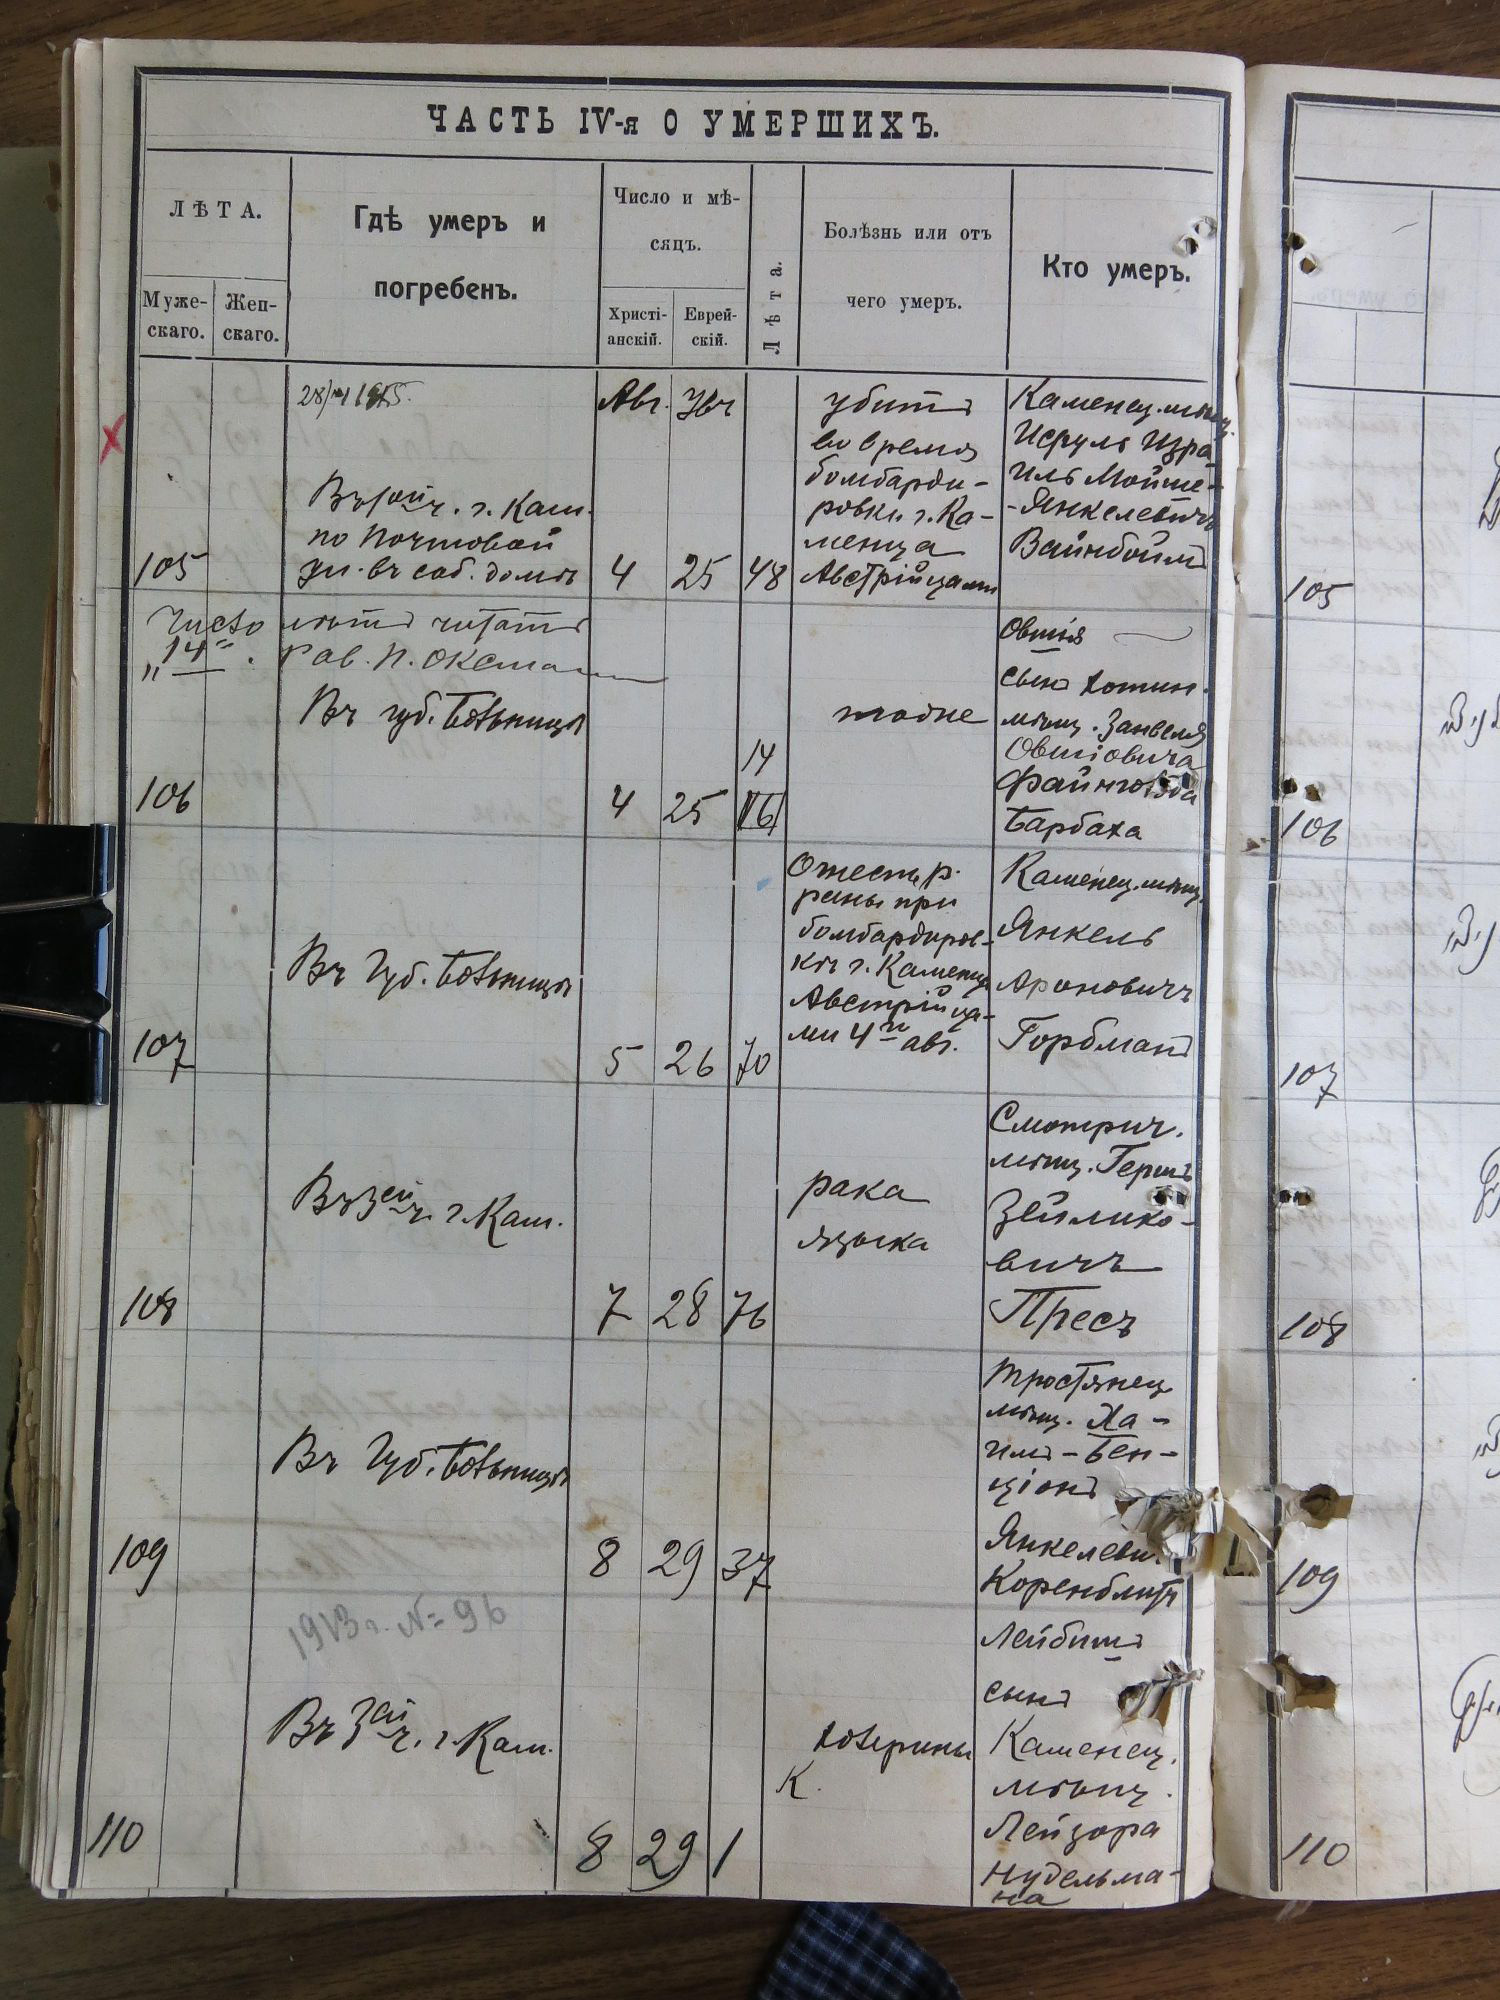 ЧАСТЬ IV-я О УМЕРШИХЪ.
ЛѢТА.
Муже-
скаго.
Жен-
скаго.
Гдѣ умеръ и
погребенъ.
Число и мѣ-
сяцъ.
Христі-
анскій.
Еврей-
скій.
Лѣта.
Болѣзнь или отъ
чего умеръ.
Кто умеръ.
105
Въ 1ой ч. г. Кам.
по Почтовой
ул. въ соб. домѣ
Авг.
4
25
48
убитъ
во время
бомбарди-
ровки г. Ка-
менца
Австрійцами
Каменец. мѣщ.
Исруль Изра-
иль Мойше-
-Янкелевичъ
Вайнбоймъ
105
Число лѣтъ читать
„14“. Рав. П.
106
Въ губ. больницѣ
4
25
14
16
тоже
Овшія
сынъ Хотин.
мѣщ. Занвеля
Овшіовича
Барбаха
106
107
Въ Губ. больницѣ
5
26
70
От
раны при
бомбардиров-
кѣ г. Каменца
Австрійца-
ми 4го авг.
Каменец. мѣщ.
Янкель
Ароновичъ
Горбманъ
107
108
Въ 3ей ч. г. Кам.
7
28
76
рака
языка
Смотрич.
мѣщ. Гершъ
Зейлико-
вичъ
Пресъ
108
109
Въ Губ. больницѣ
8
29
37
Тростянец
мѣщ. Ха-
имъ-Бен-
ціонъ
Янкелеви
Коренблитъ
109
1913 г. № 96
110
Въ 3ей ч. г. Кам.
8
29
1
холерины
К.
Лейбишъ
сынъ
Каменец.
мѣщ.
Лейзора
Нудельма-
на
110